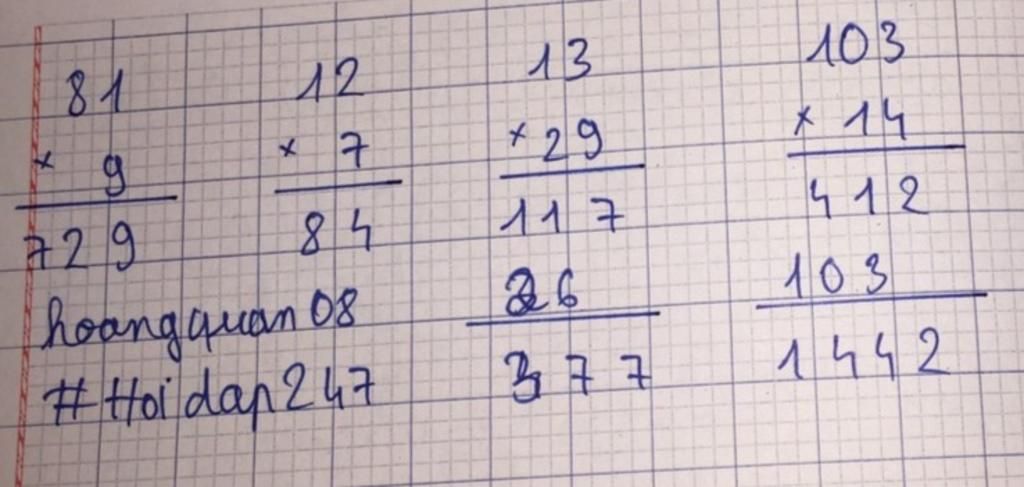 81
× 9
729
12
× 7
84
13
× 29
117
26
377
103
× 14
412
103
1442
hoangquan08
#Hoidap247